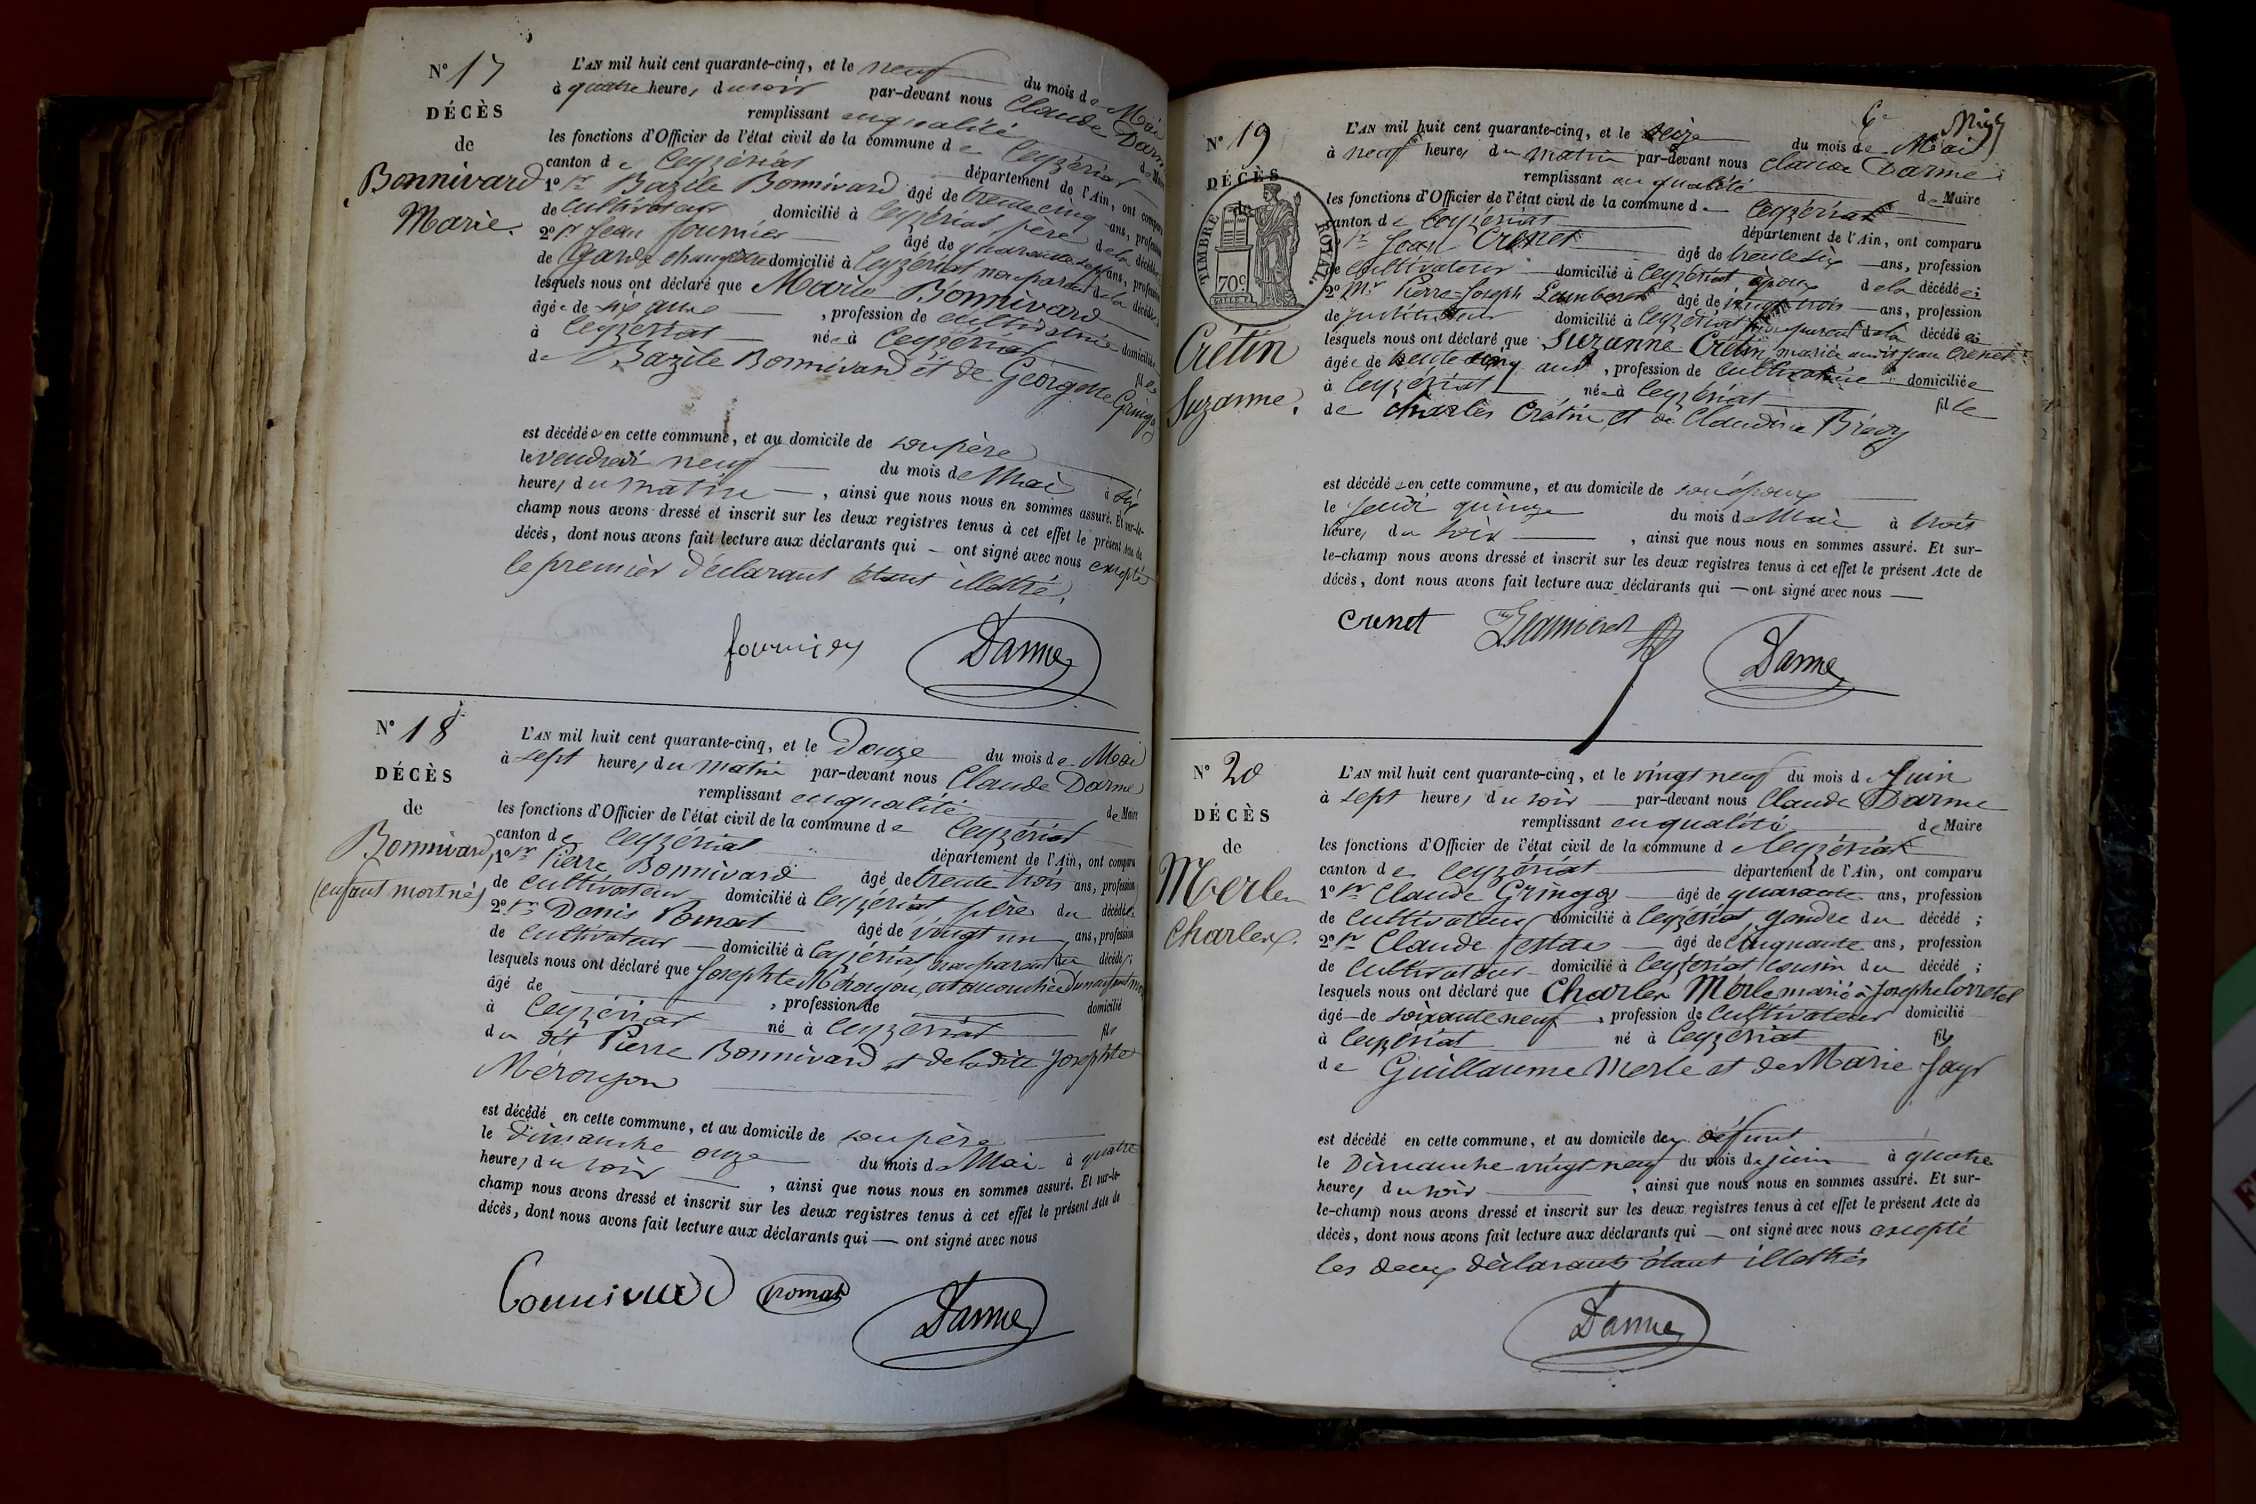 N° 17
DÉCÈS
de
Bonnivard
Marie.
L'AN mil huit cent quarante-cinq, et le neuf du mois de Mai
à quatre heures du soir par-devant nous Claude Darme
remplissant en qualité de Maire
les fonctions d'Officier de l'état civil de la commune de Ceyzériat
canton de Ceyzériat département de l'Ain, ont comparu
1° Sr Bazile Bonnivard âgé de trente cinq ans, profession
de Cultivateur domicilié à Ceyzériat père de la décédée
2° Sr Jean fournier âgé de quarante sept ans, profession
de Garde champêtre domicilié à Ceyzériat non parent de la décédée
lesquels nous ont déclaré que Marie Bonnivard
âgée de six ans , profession de cultivatrice domiciliée
à Ceyzériat née à Ceyzériat fille
de Bazile Bonnivard et de Georgette Gringoz
est décédée en cette commune, et au domicile de son père
le vendredi neuf du mois de Mai à six
heures du matin , ainsi que nous nous en sommes assuré. Et sur-le-
champ nous avons dressé et inscrit sur les deux registres tenus à cet effet le présent Acte de
décès, dont nous avons fait lecture aux déclarants qui — ont signé avec nous excepté
le premier déclarant étant illettré.
fournier Darme
N° 18
DÉCÈS
de
Bonnivard
(enfant mort né)
L'AN mil huit cent quarante-cinq, et le Douze du mois de Mai
à sept heures du matin par-devant nous Claude Darme
remplissant en qualité de Maire
les fonctions d'Officier de l'état civil de la commune de Ceyzériat
canton de Ceyzériat département de l'Ain, ont comparu
1° Sr Pierre Bonnivard âgé de trente trois ans, profession
de cultivateur domicilié à Ceyzériat père du décédé
2° Sr Denis Pomat âgé de vingt un ans, profession
de Cultivateur domicilié à Ceyzériat, non parent du décédé ;
lesquels nous ont déclaré que Josephte Mérougon, est accouchée d'un enfant mort
âgé de , profession de domicilié
à Ceyzériat né à Ceyzériat fils
du dit Pierre Bonnivard et de la dite Josephte
Mérougon
est décédé en cette commune, et au domicile de son père
le Dimanche onze du mois de Mai à quatre
heures du soir , ainsi que nous nous en sommes assuré. Et sur-le-
champ nous avons dressé et inscrit sur les deux registres tenus à cet effet le présent Acte de
décès, dont nous avons fait lecture aux déclarants qui — ont signé avec nous
Bonnivard Pomat Darme
6e
N° 19
DÉCÈS
de
TIMBRE ROYAL.
70c
Crétin
Suzanne.
L'AN mil huit cent quarante-cinq, et le seize du mois de Mai
à neuf heures du matin par-devant nous Claude Darme
remplissant en qualité de Maire
les fonctions d'Officier de l'état civil de la commune de Ceyzériat
canton de Ceyzériat département de l'Ain, ont comparu
1° Sr Jean Crenet âgé de trente six ans, profession
de Cultivateur domicilié à Ceyzériat, époux de la décédée ;
2° Mr Pierre-Joseph Lambert âgé de vingt trois ans, profession
de instituteur domicilié à Ceyzériat non parent de la décédée
lesquels nous ont déclaré que Suzanne Crétin, mariée au dit Jean Crenet
âgée de trente cinq ans , profession de Cultivatrice domiciliée
à Ceyzériat née à Ceyzériat fille
de Charles Crétin et de Claudine Brévy
est décédée en cette commune, et au domicile de son époux
le Jeudi quinze du mois de Mai à trois
heures du soir , ainsi que nous nous en sommes assuré. Et sur-
le-champ nous avons dressé et inscrit sur les deux registres tenus à cet effet le présent Acte de
décès, dont nous avons fait lecture aux déclarants qui — ont signé avec nous —
crenet Lambert Darme
N° 20
DÉCÈS
de
Merle
Charles.
L'AN mil huit cent quarante-cinq, et le vingt neuf du mois de Juin
à sept heures du soir par-devant nous Claude Darme
remplissant en qualité de Maire
les fonctions d'Officier de l'état civil de la commune de Ceyzériat
canton de Ceyzériat département de l'Ain, ont comparu
1° Sr Claude Gringoz âgé de quarante ans, profession
de cultivateur domicilié à Ceyzériat, gendre du décédé ;
2° Sr Claude âgé de Cinquante ans, profession
de Cultivateur domicilié à Ceyzériat Cousin du décédé ;
lesquels nous ont déclaré que Charles Merle marié à Josephe
âgé de soixante neuf , profession de Cultivateur domicilié
à Ceyzériat né à Ceyzériat fils
de Guillaume Merle et de Marie
est décédé en cette commune, et au domicile du défunt
le Dimanche vingt neuf du mois de juin à quatre
heures du soir , ainsi que nous nous en sommes assuré. Et sur-
le-champ nous avons dressé et inscrit sur les deux registres tenus à cet effet le présent Acte de
décès, dont nous avons fait lecture aux déclarants qui — ont signé avec nous excepté
les deux déclarants étant illettrés
Darme